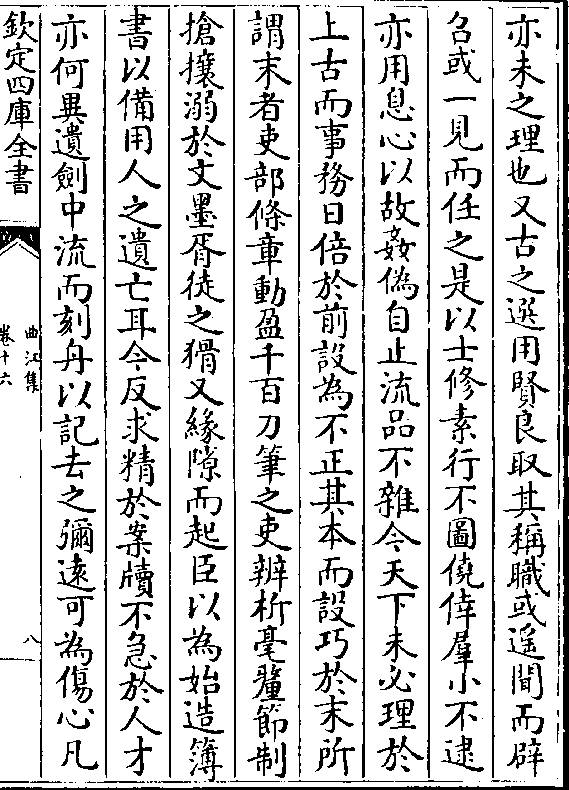 亦未之理也又古之選用賢良取其稱職或遥聞而辟
召或一見而任之是以士修素行不圖僥倖羣小不逮
亦用息心以故姦偽自止流品不雜今天下未必理於
上古而事務日倍於前設為不正其本而設巧於末所
謂末者吏部條章動盈千百刀筆之吏辨析毫釐節制
搶攘溺於文墨胥徒之猾又緣隙而起臣以為始造簿
書以備用人之遺亡耳今反求精於案牘不急於人才
亦何異遺劍中流而刻舟以記去之彌遠可為傷心凡
欽定四庫全書
曲江集
卷十六
八